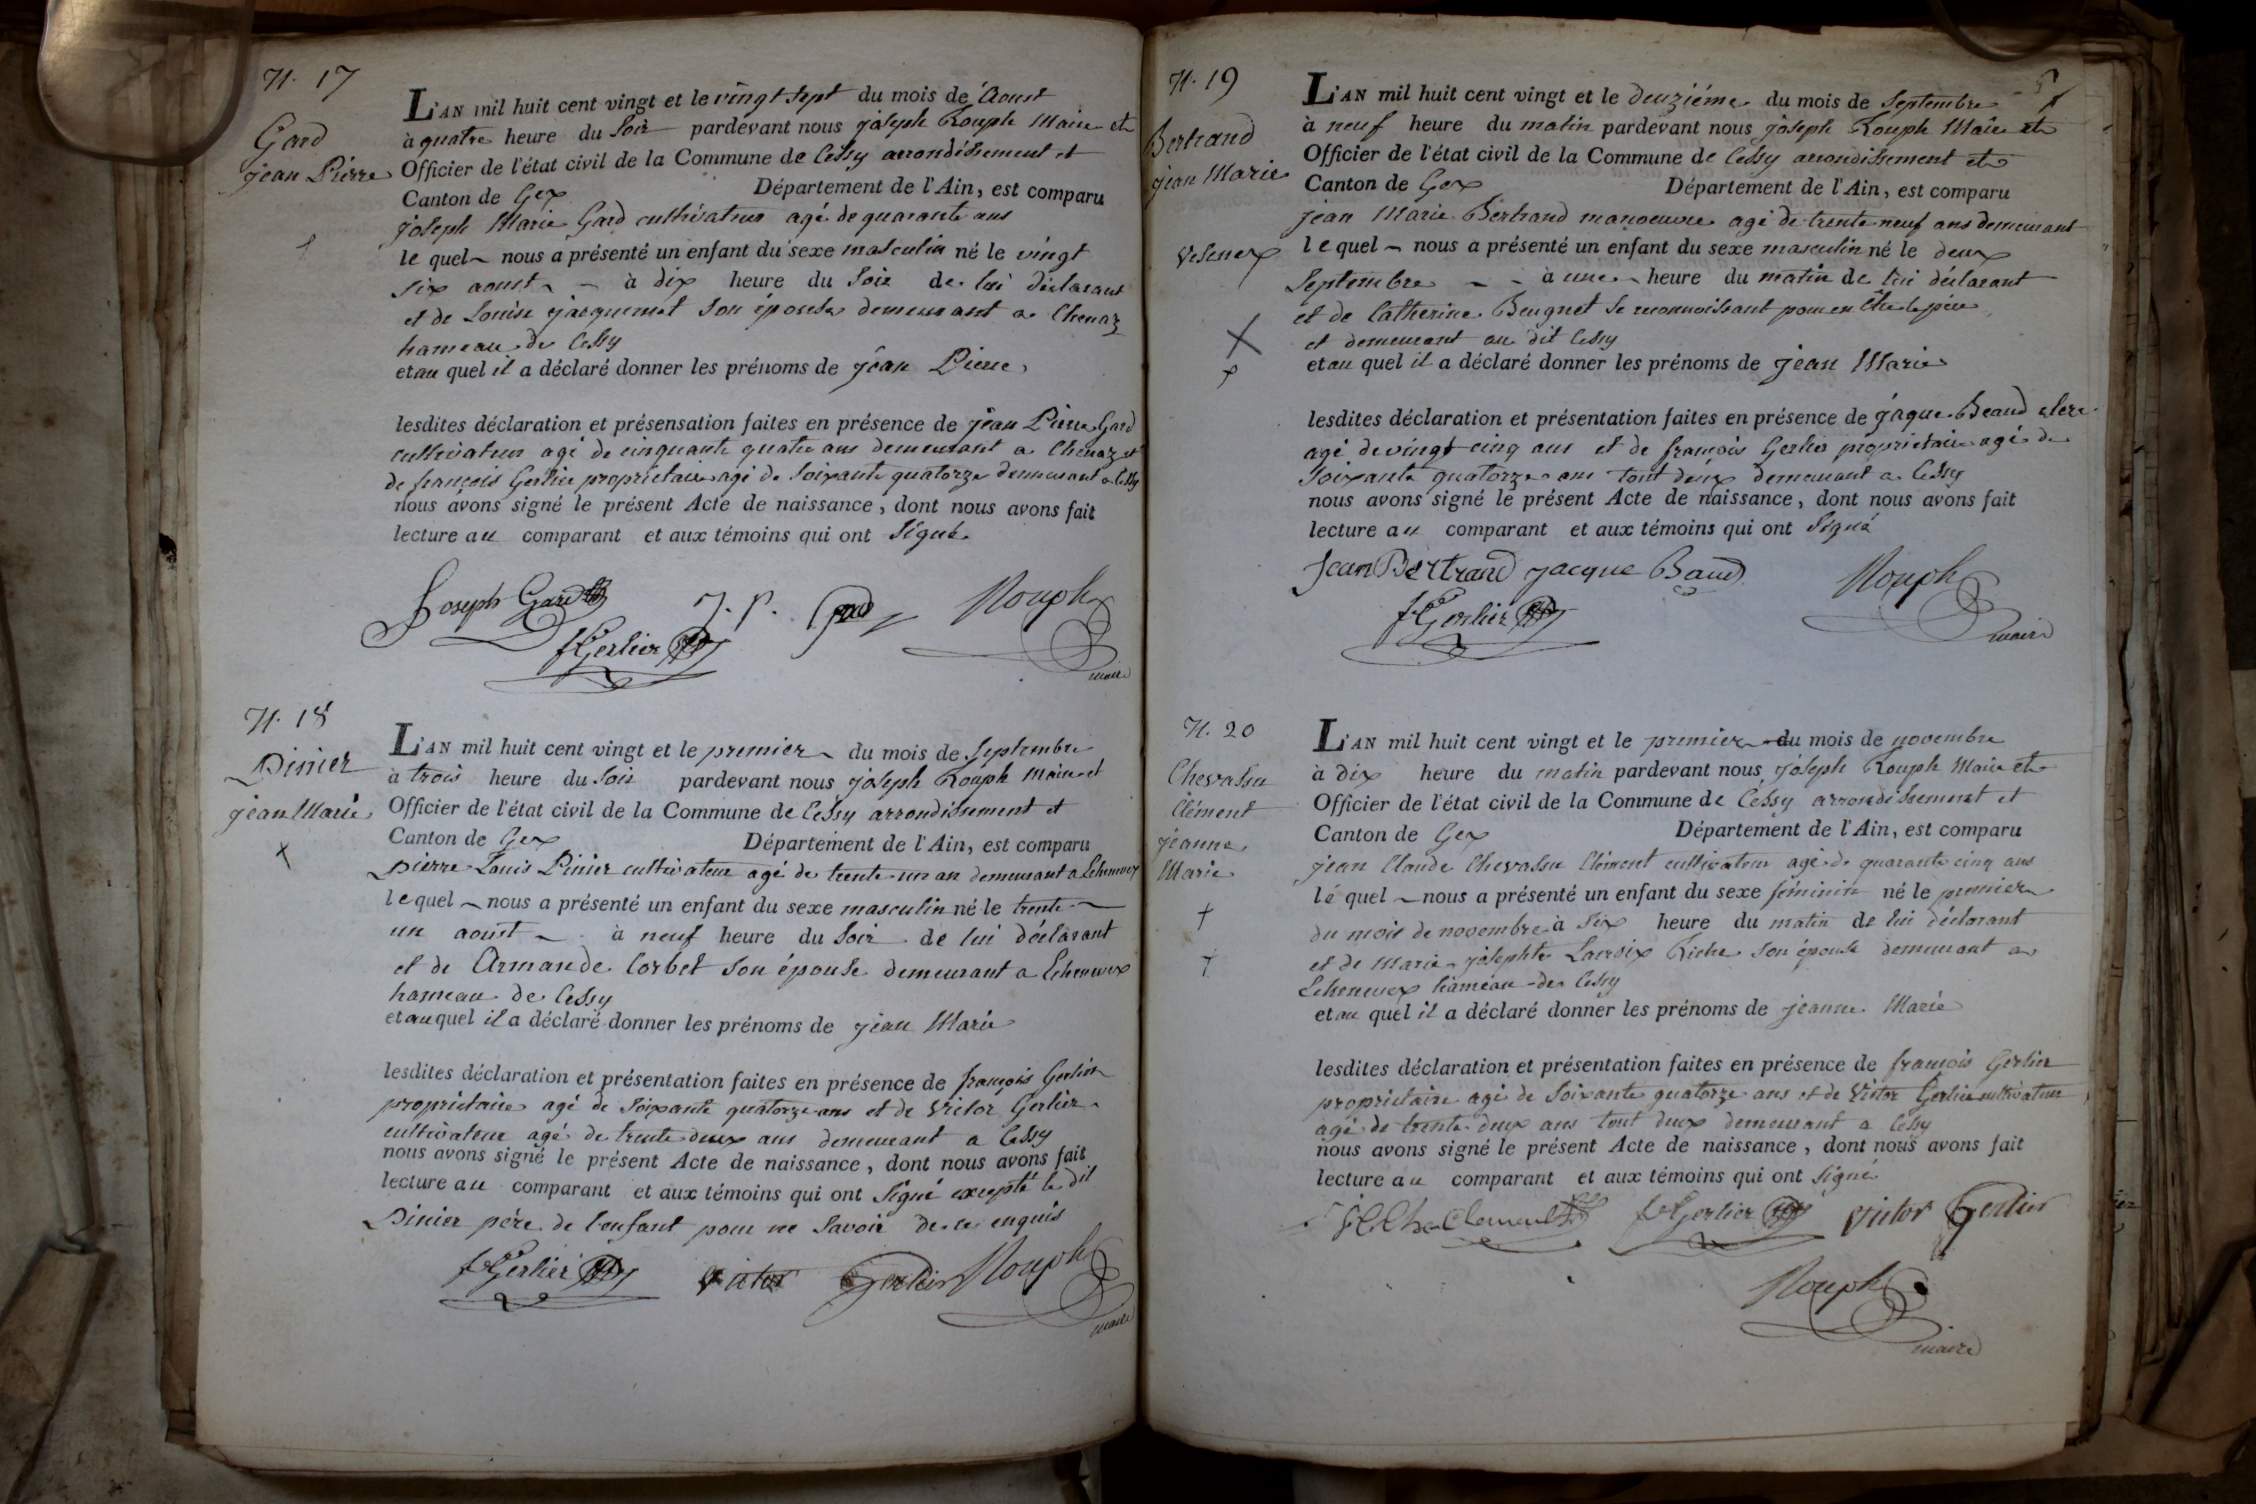 N. 17
Gard
jean Pierre
L'AN mil huit cent vingt et le vingt sept du mois de Aoust
à quatre heure du Soir pardevant nous joseph Rouph Maire et
Officier de l'état civil de la Commune de Cessy arrondissement et
Canton de Gex Département de l'Ain, est comparu
joseph Marie Gard cultivateur agé de quarante ans
le quel nous a présenté un enfant du sexe masculin né le vingt
six aoust à dix heure du Soir de lui déclarant
et de Louise jacquemet son épouse demeurant a Chenaz
hameau de Cessy
et au quel il a déclaré donner les prénoms de jean Pierre
lesdites déclaration et présensation faites en présence de jean Pierre Gard
cultivateur agé de cinquante quatre ans demeurant a Chenaz et
de françois Gerlier propriétaire agé de soixante quatorze demeurant a Cessy
nous avons signé le présent Acte de naissance, dont nous avons fait
lecture au comparant et aux témoins qui ont signé
Joseph Gard J. P. Gard Rouph
fs Gerlier maire
N. 18
Pinier
jean Marie
L'AN mil huit cent vingt et le premier du mois de Septembre
à trois heure du Soir pardevant nous joseph Rouph Maire et
Officier de l'état civil de la Commune de Cessy arrondissement et
Canton de Gex Département de l'Ain, est comparu
Pierre Louis Pinier cultivateur agé de trente un an demeurant a Echenevex
le quel nous a présenté un enfant du sexe masculin né le trente
un aoust à neuf heure du Soir de lui déclarant
et de Armande Corbet son épouse demeurant a Echenevex
hameau de Cessy
et au quel il a déclaré donner les prénoms de jean Marie
lesdites déclaration et présentation faites en présence de françois Gerlier
propriétaire agé de soixante quatorze ans et de Victor Gerlier
cultivateur agé de trente deux ans demeurant a Cessy
nous avons signé le présent Acte de naissance, dont nous avons fait
lecture au comparant et aux témoins qui ont signé excepté le dit
Pinier père de l'enfant pour ne savoir de ce enquis
fs Gerlier victor Gerlier Rouph
maire
N. 19
Bertrand
jean Marie
Vesenex
L'AN mil huit cent vingt et le deuzième du mois de Septembre
à neuf heure du matin pardevant nous joseph Rouph Maire et
Officier de l'état civil de la Commune de Cessy arrondissement et
Canton de Gex Département de l'Ain, est comparu
jean Marie Bertrand manoeuvre agé de trente neuf ans demeurant
le quel nous a présenté un enfant du sexe masculin né le deux
Septembre à une heure du matin de lui déclarant
et de Catherine Beugnet se reconnoissant pour en être le père
et demeurant au dit Cessy
et au quel il a déclaré donner les prénoms de jean Marie
lesdites déclaration et présentation faites en présence de jaque Beaud clerc
agé de vingt cinq ans et de françois Gerlier propriétaire agé de
soixante quatorze ans tout deux demeurant a Cessy
nous avons signé le présent Acte de naissance, dont nous avons fait
lecture au comparant et aux témoins qui ont signé
Jean Bertrand Jacque Baud Rouph
fs Gerlier maire
N. 20
Chevassu
Clément
jeanne
Marie
L'AN mil huit cent vingt et le premier du mois de novembre
à dix heure du matin pardevant nous joseph Rouph Maire et
Officier de l'état civil de la Commune de Cessy arrondissement et
Canton de Gex Département de l'Ain, est comparu
jean Claude Chevassu Clément cultivateur agé de quarante cinq ans
le quel nous a présenté un enfant du sexe féminin né le premier
du mois de novembre à six heure du matin de lui déclarant
et de Marie josephte Lacroix Riche son épouse demeurant a
Echenevex hameau de Cessy
et au quel il a déclaré donner les prénoms de jeanne Marie
lesdites déclaration et présentation faites en présence de françois Gerlier
propriétaire agé de soixante quatorze ans et de Victor Gerlier cultivateur
agé de trente deux ans tout deux demeurant a Cessy
nous avons signé le présent Acte de naissance, dont nous avons fait
lecture au comparant et aux témoins qui ont signé
Clement fs Gerlier victor Gerlier
Rouph
maire